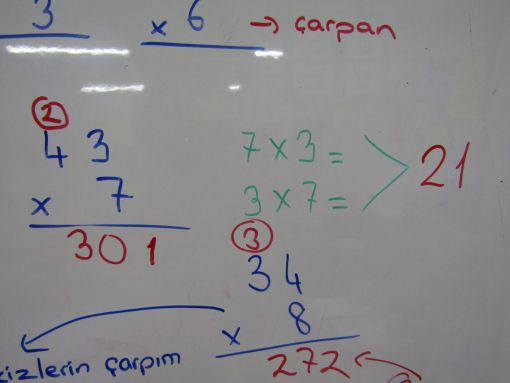 3
x 6 → çarpan
2
43
x 7
301
7 x 3 =
3 x 7 =
21
3
34
x 8
272
çarpım